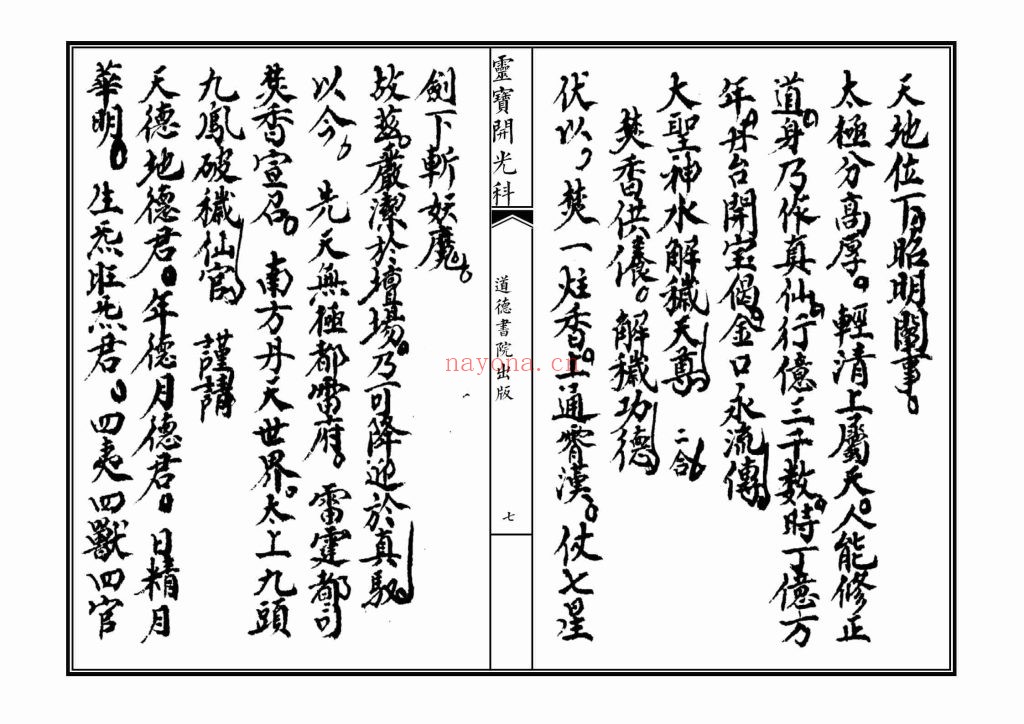 天地位下昭明闡事。
太極分高厚。輕清上屬天。人能修正
道身乃作真仙行億三千数時丁億万
年。丹台開宝偈金口永流傳
大聖神水解穢天尊 二合
焚香供養。解穢功德
伏以，焚一炷香。上通霄漢。仗七星
靈寶開光科
道德書院出版
七
劍下斬妖魔。
故茲嚴潔於壇場。乃可降迎於真馭
以今，先天無極都雷府。雷霆都司
焚香宣召。南方丹天世界。太上九頭
九鳳破穢仙官 謹請
天德地德君。年德月德君。日精月
華明。生炁旺炁君。四夷四獸四官
nayona.cn